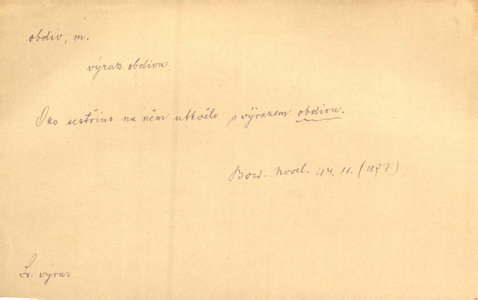 obdiv, m.
výraz obdivu.
Oko sestřino na něm utkvělo s výrazem obdivu.
novel. 44. 11. (1877)
výraz